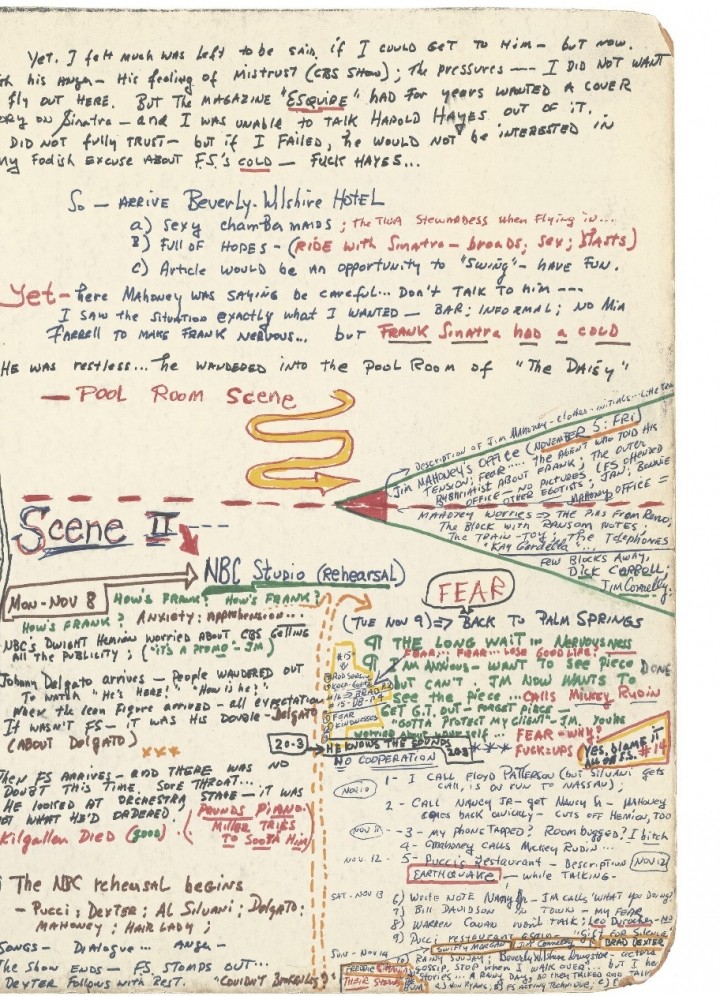 Yet, I felt much was left to be said, if I could get to Him - but now.
his anger - His feeling of Mistrust (CBS Show); The pressures --- I DID NOT WANT
fly out here. But The MAGAZINE "ESQUIRE" HAD For years WANTED A COVER
on Sinatra - and I was unable to talk Harold Hayes out of it.
DID NOT fully TRUST - but if I FAILED, he would NOT be interested in
my Foolish Excuse About F.S.'s COLD - FUCK HAYES...
So - ARRIVE Beverly-Wilshire HOTEL
a) Sexy chambermaids; the TWA Stewardess when flying in...
B) Full of HOPES - (RIDE with Sinatra - broads; Sex; Blasts)
c) Article would be an opportunity to "Swing" - have Fun.
Yet - here Mahoney was saying be careful... Don't talk to him ---
I saw the situation exactly what I wanted - BAR; INFORMAL; NO Mia
FARRELL TO MAKE FRANK NERVOUS... but FRANK Sinatra had a cold
HE WAS restless... he wandered into the Pool Room of "The Daisy"
- Pool Room Scene
Description of Jim Mahoney - clothes - initials...
Jim Mahoney's Office (November 5: Fri)
TENSION; FEAR.... The Agent who told his
rhythmist About FRANK; The outer
office - no pictures (FS offended
other egotists; JAN; Bonnie
Mahoney office =
MAHONEY WORRIES => The Pins From Reno;
The Block with Ransom Notes;
The TRAIN-TOY; The Telephones
"Kay Gardella"...
Few Blocks Away,
Dick Carroll;
Jim Connelly
Scene II
NBC Studio (rehearsal)
Mon-Nov 8
How's Frank? How's Frank?
How's Frank? Anxiety; Apprehension...
NBC's Dwight Hemion worried about CBS Getting
all the publicity; ("it's a promo" - JM)
Johnny Delgato arrives - People wandered out
To watch "He's Here!" "How is he?"
When the icon Figure arrived - all expectation
It wasn't FS - it was His Double - Delgato
(ABOUT DELGATO)
xxx
Then FS ARRIVES - and there was no
Doubt this time. Sore Throat...
He looked at orchestra stage - it was
not what he'd ordered!
Kilgallen Died (good)
(Pounds Piano.
Miller Tries
to Sooth Him)
The NBC rehearsal begins
- Pucci; Dexter; Al Silvani; Delgato;
Mahoney; Hair Lady;
Songs - Dialogue... Anger -
The Show ENDS - FS. Stomps out...
Dexter Follows with Rest.
FEAR
(TUE NOV 9) => BACK TO PALM SPRINGS
¶ THE LONG WAIT in Nervousness
FEAR... FEAR... Lose Good Life?
¶ I am Anxious - WANT to See Piece
DONE
but can't. JM NOW WANTS to
See the piece... Calls Mickey Rudin
GET G.T. Out - Forget Piece -
"Gotta Protect my Client" - JM. You're
worried about yourself...
FEAR - Why?
FUCK=UPS
Yes, blame it
all on S.S. #14
#15
FEAR
Kindnesses
20-3
He Knows the Sounds
20B
***
NO COOPERATION
Nov 10
1 - I Call Floyd Patterson (but Silvani gets
call, is on run to Nassau);
2 - Call Nancy Jr - get Nancy Sr - Mahoney
back quickly - cuts off Hemion, too
Nov 11
3 - my phone tapped? Room bugged? I bitch
4 - Mahoney calls Mickey Rudin...
Nov. 12
5 - Pucci's Restaurant - Description
Nov 12
EARTHQUAKE - while talking -
Sat - Nov 13
6) Write Note Nancy Jr - JM calls "What you doing?"
7) Bill Davidson in town - my Fear
8) Warren Cowan won't talk; Leo Durocher - No
9) Pucci restaurant again - "Gift for Silence"
Swifty Morgan
Jim Connelly
Brad Dexter
Sun - Nov 14
10) Rainy Sunday; Beverly Wilshire Drugstore - actors
gossip, stop when I walk over... but I